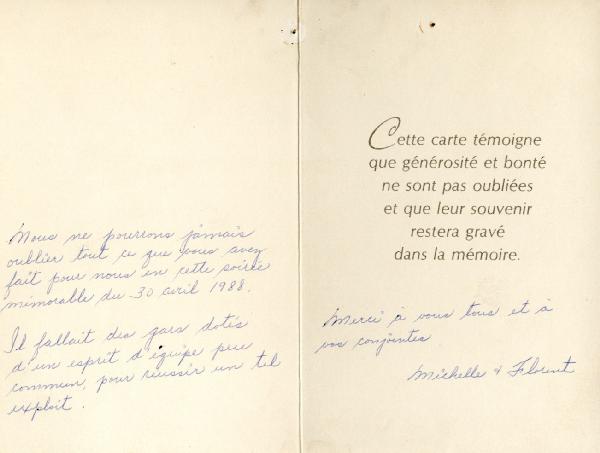 Nous ne pourrons jamais
oublier tout ce que vous avez
fait pour nous en cette soirée
mémorable du 30 avril 1988.
Il fallait des gars dotés
d'un esprit d'équipe peu
commun, pour réussir un tel
exploit.
Cette carte témoigne
que générosité et bonté
ne sont pas oubliées
et que leur souvenir
restera gravé
dans la mémoire.
Merci à vous tous et à
vos conjointes
Michelle & Florent